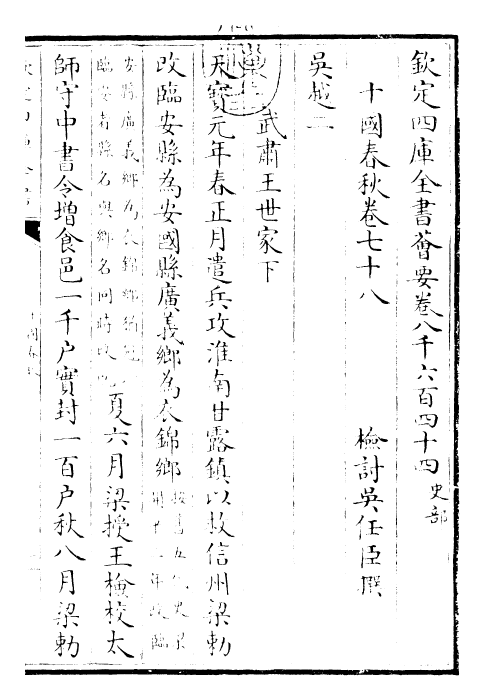 欽定四庫全書薈要卷八千六百四十四 史部
十國春秋卷七十八
檢討吳任臣撰
吳越二
武肅王世家下
天寶元年春正月遣兵攻淮南甘露鎮以救信州梁勅
改臨安縣為安國縣廣義鄉為衣錦鄉
年改臨
安縣廣義鄉為衣錦鄉
臨安者縣名與鄉名同時改
夏六月梁授王檢校太
師守中書令增食邑一千户實封一百户秋八月梁勅